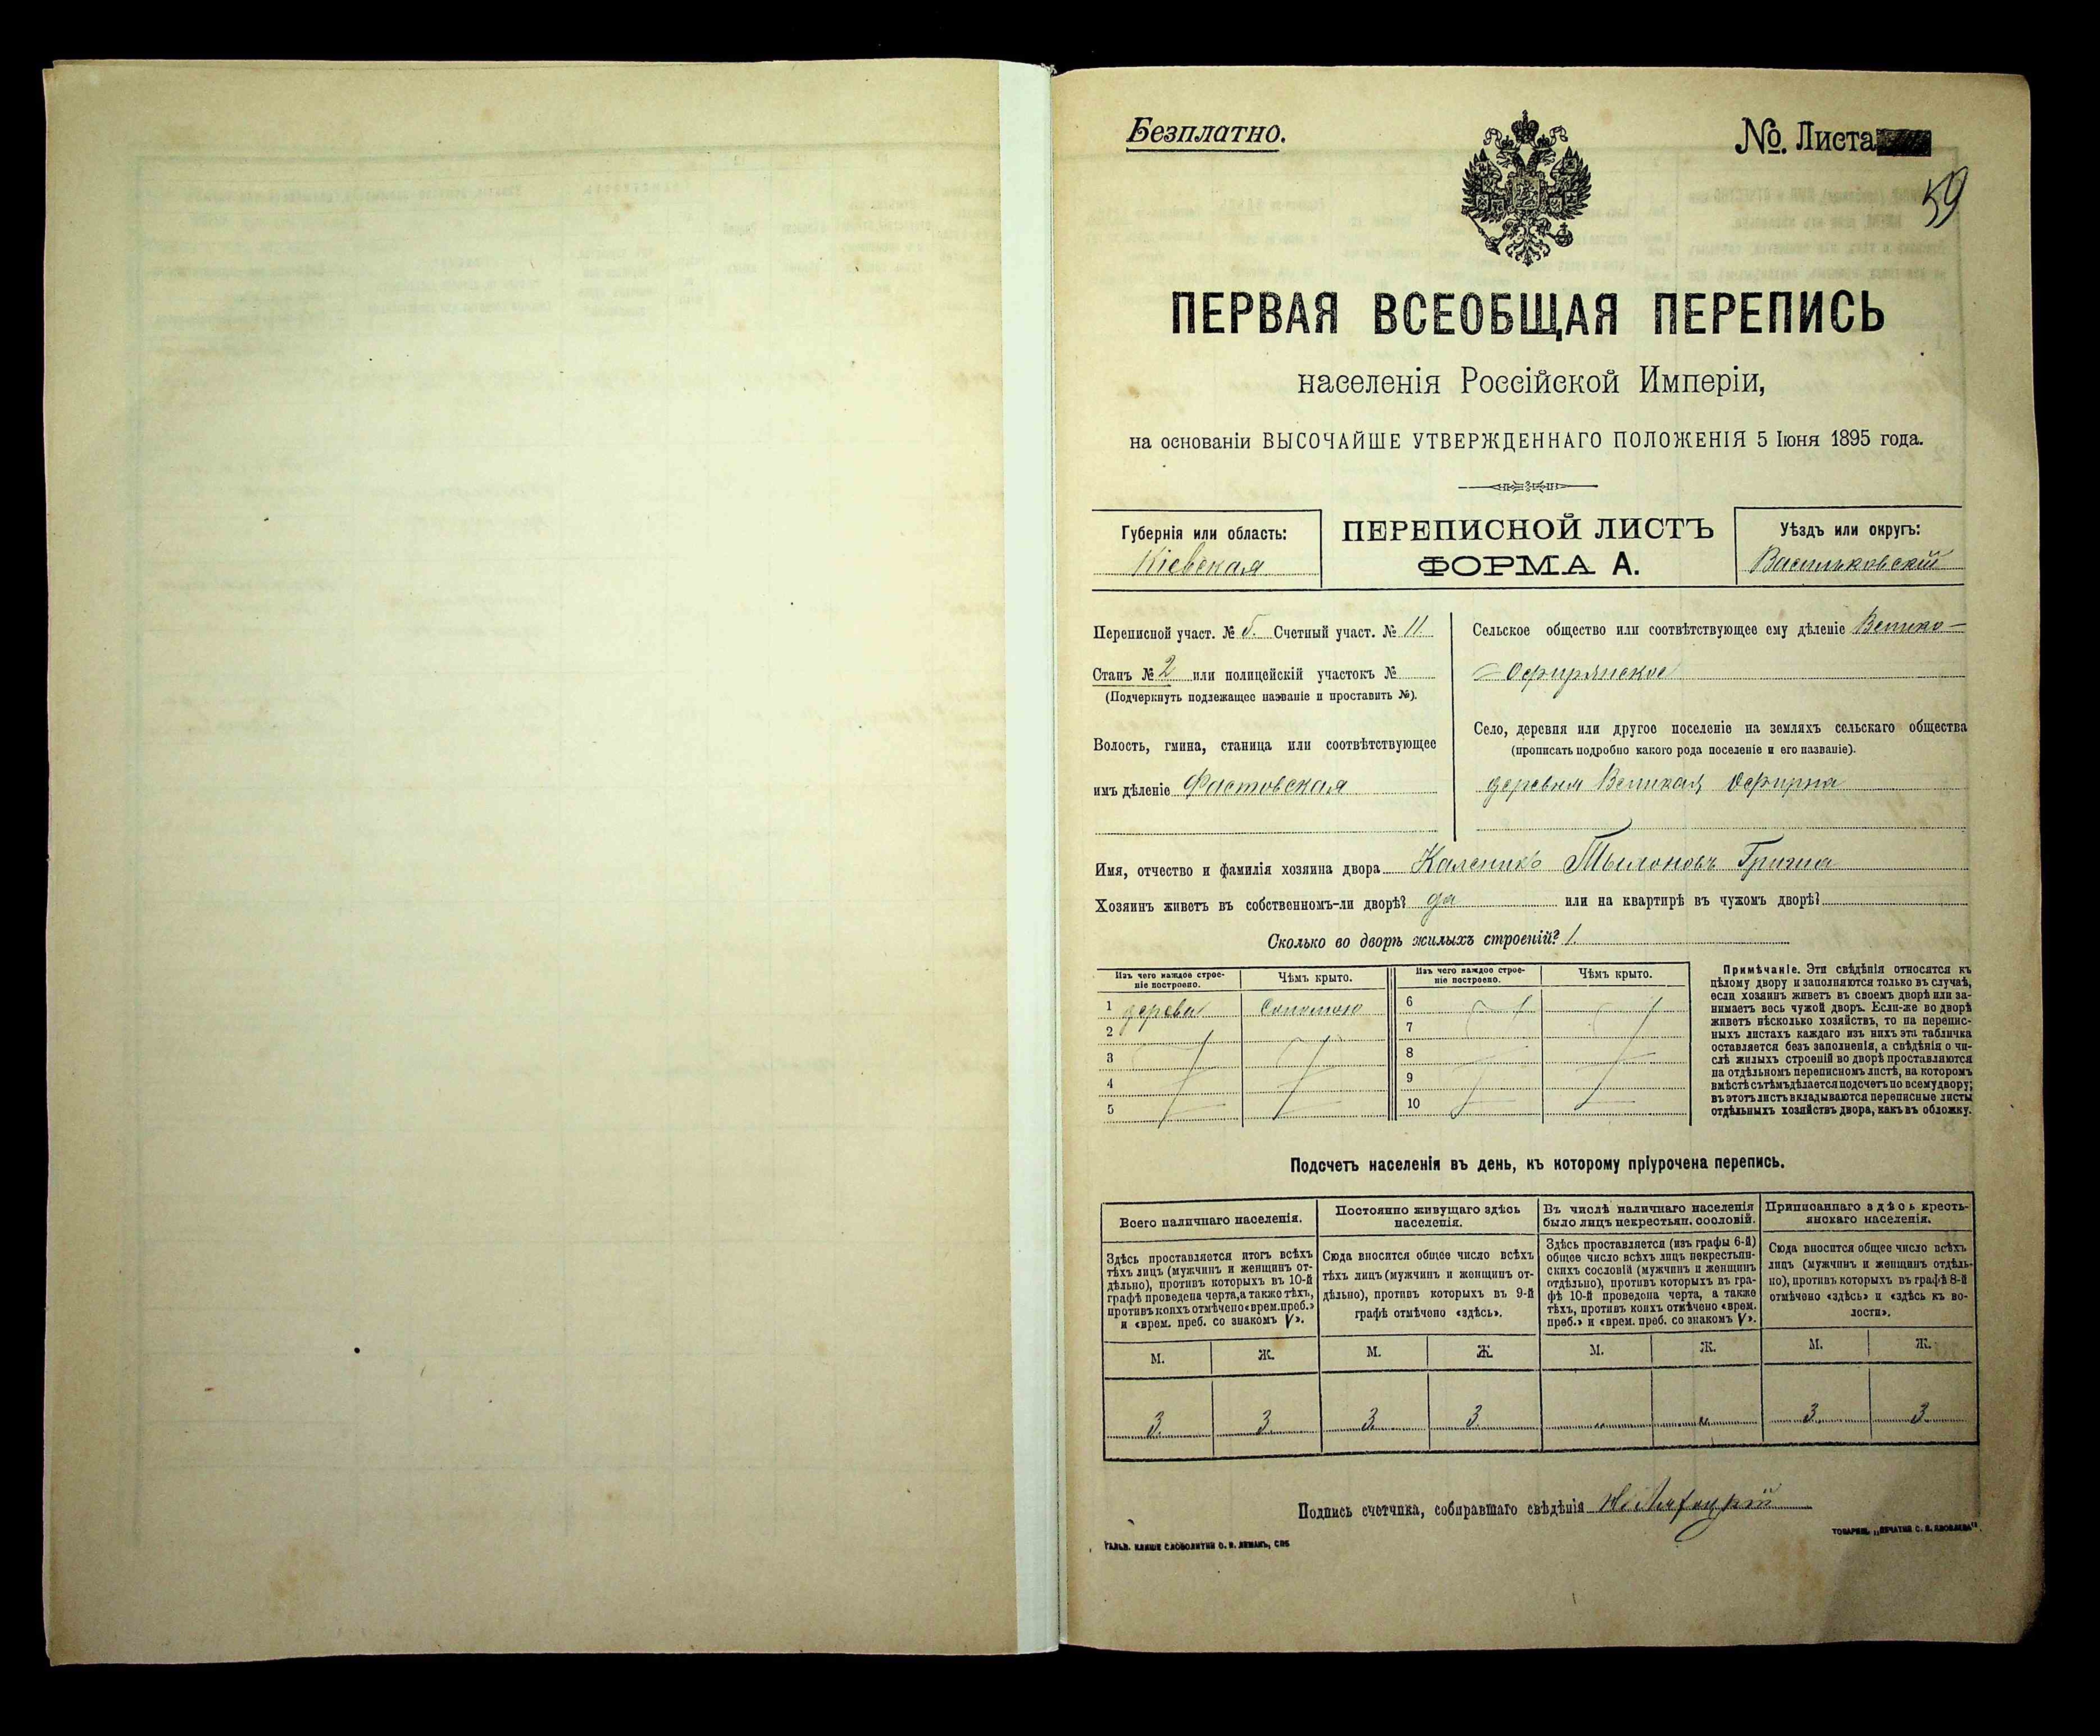 Безплатно.
№. Листа
59
ПЕРВАЯ ВСЕОБЩАЯ ПЕРЕПИСЬ
населенія Россійской Имперіи,
на основаніи ВЫСОЧАЙШЕ УТВЕРЖДЕННАГО ПОЛОЖЕНІЯ 5 Іюня 1895 года.
Губернія или область:
Кіевская
ПЕРЕПИСНОЙ ЛИСТЪ
ФОРМА А.
Уѣздъ или округъ:
Васильковскій
Переписной участ. № 5. Счетный участ. № 11.
Станъ № 2 или полицейскій участокъ №
(Подчеркнуть подлежащее названіе и проставить №).
Волость, гмина, станица или соотвѣтствующее
имъ дѣленіе Фастовская
Сельское общество или соотвѣтствующее ему дѣленіе Велико-
-Офирянское
Село, деревня или другое поселеніе на земляхъ сельскаго общества
(прописать подробно какого рода поселеніе и его названіе).
деревня Великая Офирна
Имя, отчество и фамилія хозяина двора Каленикъ Грима
Хозяинъ живетъ въ собственномъ-ли дворѣ? да или на квартирѣ въ чужомъ дворѣ?
Сколько во дворѣ жилыхъ строеній? 1.
Изъ чего каждое строе-
ніе построено.
Чѣмъ крыто.
1 дерева Соломою
2
3
4
5
Изъ чего каждое строе-
ніе построено.
Чѣмъ крыто.
6
7
8
9
10
Примѣчаніе. Эти свѣдѣнія относятся къ
цѣлому двору и заполняются только въ случаѣ,
если хозяинъ живетъ въ своемъ дворѣ или за-
нимаетъ весь чужой дворъ. Если-же во дворѣ
живетъ нѣсколько хозяйствъ, то на перепис-
ныхъ листахъ каждаго изъ нихъ эта табличка
оставляется безъ заполненія, а свѣдѣнія о чи-
слѣ жилыхъ строеній во дворѣ проставляются
на отдѣльномъ переписномъ листѣ, на которомъ
вмѣстѣ съ тѣмъ дѣлается подсчетъ по всему двору;
въ этотъ листъ вкладываются переписные листы
отдѣльныхъ хозяйствъ двора, какъ въ обложку.
Подсчетъ населенія въ день, къ которому пріурочена перепись.
Всего наличнаго населенія.
Здѣсь проставляется итогъ всѣхъ
тѣхъ лицъ (мужчинъ и женщинъ от-
дѣльно), противъ которыхъ въ 10-й
графѣ проведена черта, а также тѣхъ,
противъ коихъ отмѣчено «врем. преб.»
и «врем. преб. со знакомъ V».
М. Ж.
3. 3.
Постоянно живущаго здѣсь
населенія.
Сюда вносится общее число всѣхъ
тѣхъ лицъ (мужчинъ и женщинъ от-
дѣльно), противъ которыхъ въ 9-й
графѣ отмѣчено «здѣсь».
М. Ж.
3. 3.
Въ числѣ наличнаго населенія
было лицъ некрестьян. сословій.
Здѣсь проставляется (изъ графы 6-й)
общее число всѣхъ лицъ некрестьян-
скихъ сословій (мужчинъ и женщинъ
отдѣльно), противъ которыхъ въ гра-
фѣ 10-й проведена черта, а также
тѣхъ, противъ коихъ отмѣчено «врем.
преб.» и «врем. преб. со знакомъ V».
М. Ж.
" "
Приписаннаго здѣсь кресть-
янскаго населенія.
Сюда вносится общее число всѣхъ
лицъ (мужчинъ и женщинъ отдѣль-
но), противъ которыхъ въ графѣ 8-й
отмѣчено «здѣсь» и «здѣсь къ во-
лости».
М. Ж.
3. 3.
Подпись счетчика, собиравшаго свѣдѣнія
ГАЛЬВ. КЛИШЕ СЛОВОЛИТНИ О. И. ЛЕМАНЪ, СПБ
ТОВАРИЩ. „ПЕЧАТНЯ С. П. ЯКОВЛЕВА“.